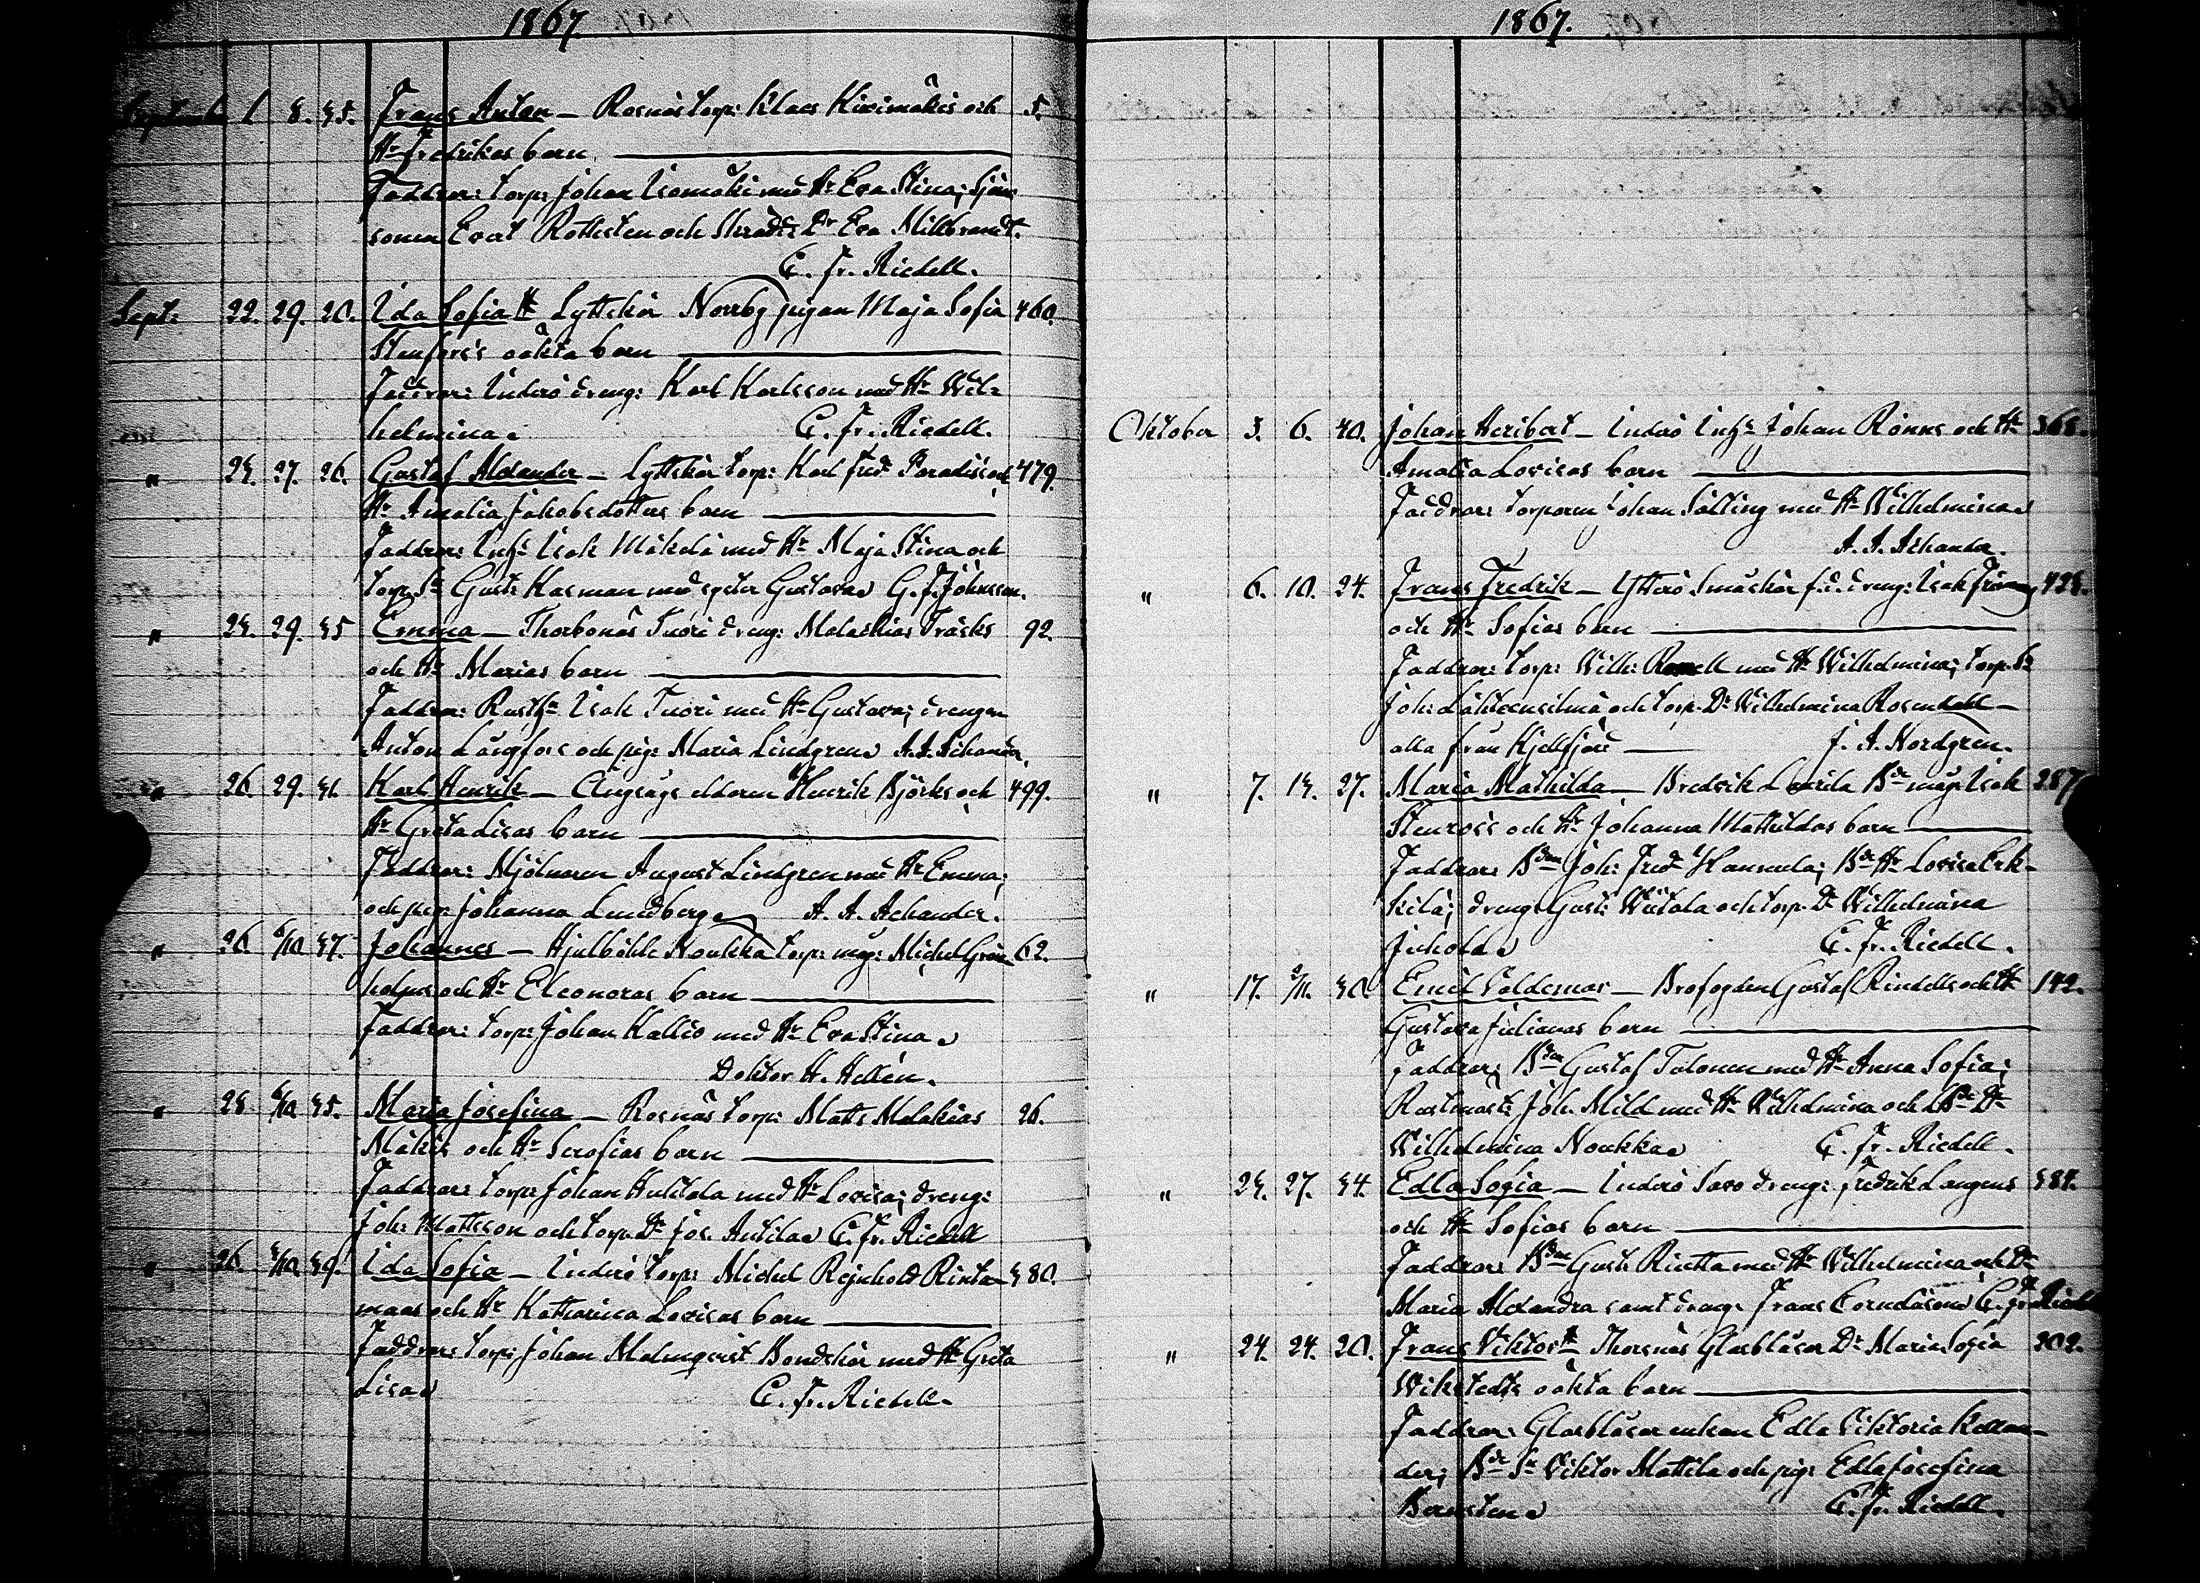 1867.
Septemb. 1 8. 35. Frans Anton — Rosnäs torp: Klaes Kivimäkis och 5.
Hr Fredrikas barn.
Faddrar: torp: Johan Isomäki med Hr Eva Stina;
sonen Evert Rothsten och Dr Eva Millbrandt.
C. Fr. Riedell.
Sept: 22. 29. 20. Ida Sofia Lyttskär Norrby pigan Maja Sofia 460.
Stenfors's oäkta barn
Faddrar: Inderö dreng: Karl Karlsson med Hr Wil-
helmina. C. Fr. Riedell.
" 23. 27. 26. Gustaf Alexander — Lyttskär torp: Karl Fred: Paradis och 479.
Hr Amalia Jakobsdotters barn
Faddrar: Inhs Isak Mäkelä med Hr Maja Stina och
torp. Sn Gust: Kasman med syster Gustava G. F. Johnsson.
" 23. 29. 35 Emma — Thorbonäs Tuori dreng: Malachias Träsks 92.
och Hr Marias barn
Faddrar: Rusthr Isak Tuori med Hr Gustava; drengen
Anton Långfors och pig: Maria Lindgren A. A. Achander.
" 26. 29. 31. Karl Henrik — Ångsågs eldaren Henrik Björks och 499.
Hr Greta Lisas barn
Faddrar: Mjölnaren August Lindgren med Hr Emma;
och pig: Johanna Lundberg A. A. Achander.
" 26. 6/10 37. Johannes — Hjulböhle Noukka torp: måg: Michel Grön- 62.
holms och Hr Eleonoras barn
Faddrar: torp: Johan Kallio med Hr Eva Stina
Doktor H. Hellén.
" 28 6/10 35. Maria Josefina — Rosnäs torp: Matts Malakias 26.
Mäkis och Hr Serafias barn
Faddrar: torp: Johan Huhtala med Hr Lovisa; dreng:
Joh: Mattsson och torp. Dr Jos. Antila C. Fr. Riedell
" 26. /10 39. Ida Sofia — Inderö torp: Michel Rejnhold Rinta- 380.
maas och Hr Katharina Lovisas barn
Faddrar: torp: Johan Malmqvist Bondskär med Hr Greta
Lisa C. Fr. Riedell.
1867.
Oktober 3. 6. 40. Johan Heribert — Inderö Inhs Johan Rönns och Hr 368.
Amalia Lovisas barn
Faddrar: torparen Johan Sälling med Hr Wilhelmina
A. A. Achander.
" 6. 10. 24. Frans Fredrik — Ytterö Småskär f.d. dreng: Isak 428.
och Hr Sofias barn
Faddrar: torp: Wilh: med Hr Wilhelmina; torp. Sn
Joh: Lähteensilmä och torp. Dr Wilhelmina Rosendahl —
alla från Kjellfjärd — J. A. Nordgren.
" 7. 13. 27. Maria Mathilda — Bredvik Bde måg: Isak 287
Stenros's och Hr Johanna Mathildas barn
Faddrar: Bden Joh: Fred: Hannula; Bde Hr Lovisa Erk-
kilä; dreng: Gust: Wiitala och torp. Dr Wilhelmina
Jichola C. Fr. Riedell.
" 17. 2/11. 30. Emil Valdemar — Brofogden Gustaf Rindells och Hr 142.
Gustava Julianas barn
Faddrar: Bden Gustaf Tolonen med Hr Anna Sofia;
Rustmast: Joh. Mild med Hr Wilhelmina och Bde Dr
Wilhelmina Noukka C. Fr. Riedell.
" 23. 27. 34. Edla Sofia — Inderö Savo dreng: Fredrik Langens 384.
och Hr Sofias barn
Faddrar: Bden Gust: Rietta med Hr Wilhelmina och Dr
Maria Alexandra samt dreng: Frans C. Fr. Riedell
" 24. 24. 20. Frans Viktor Thorsnäs Glasblåsar Dr Maria Sofia 202.
Wikstedts oäkta barn
Faddrar: Glasblåsar enkan Edla Viktoria Kellan-
der; Bde Sn Viktor Mattila och pig: Edla Josefina
Bernsten C. Fr. Riedell.